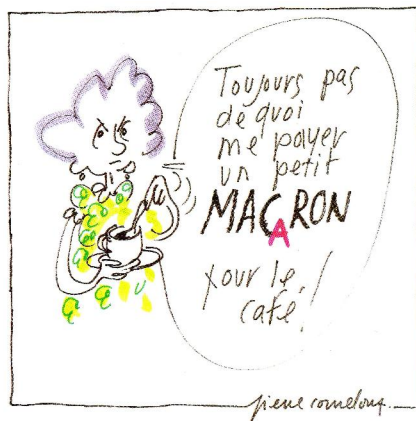 Toujours pas
de quoi
me payer
un petit
MACARON
pour le
café!
pierre